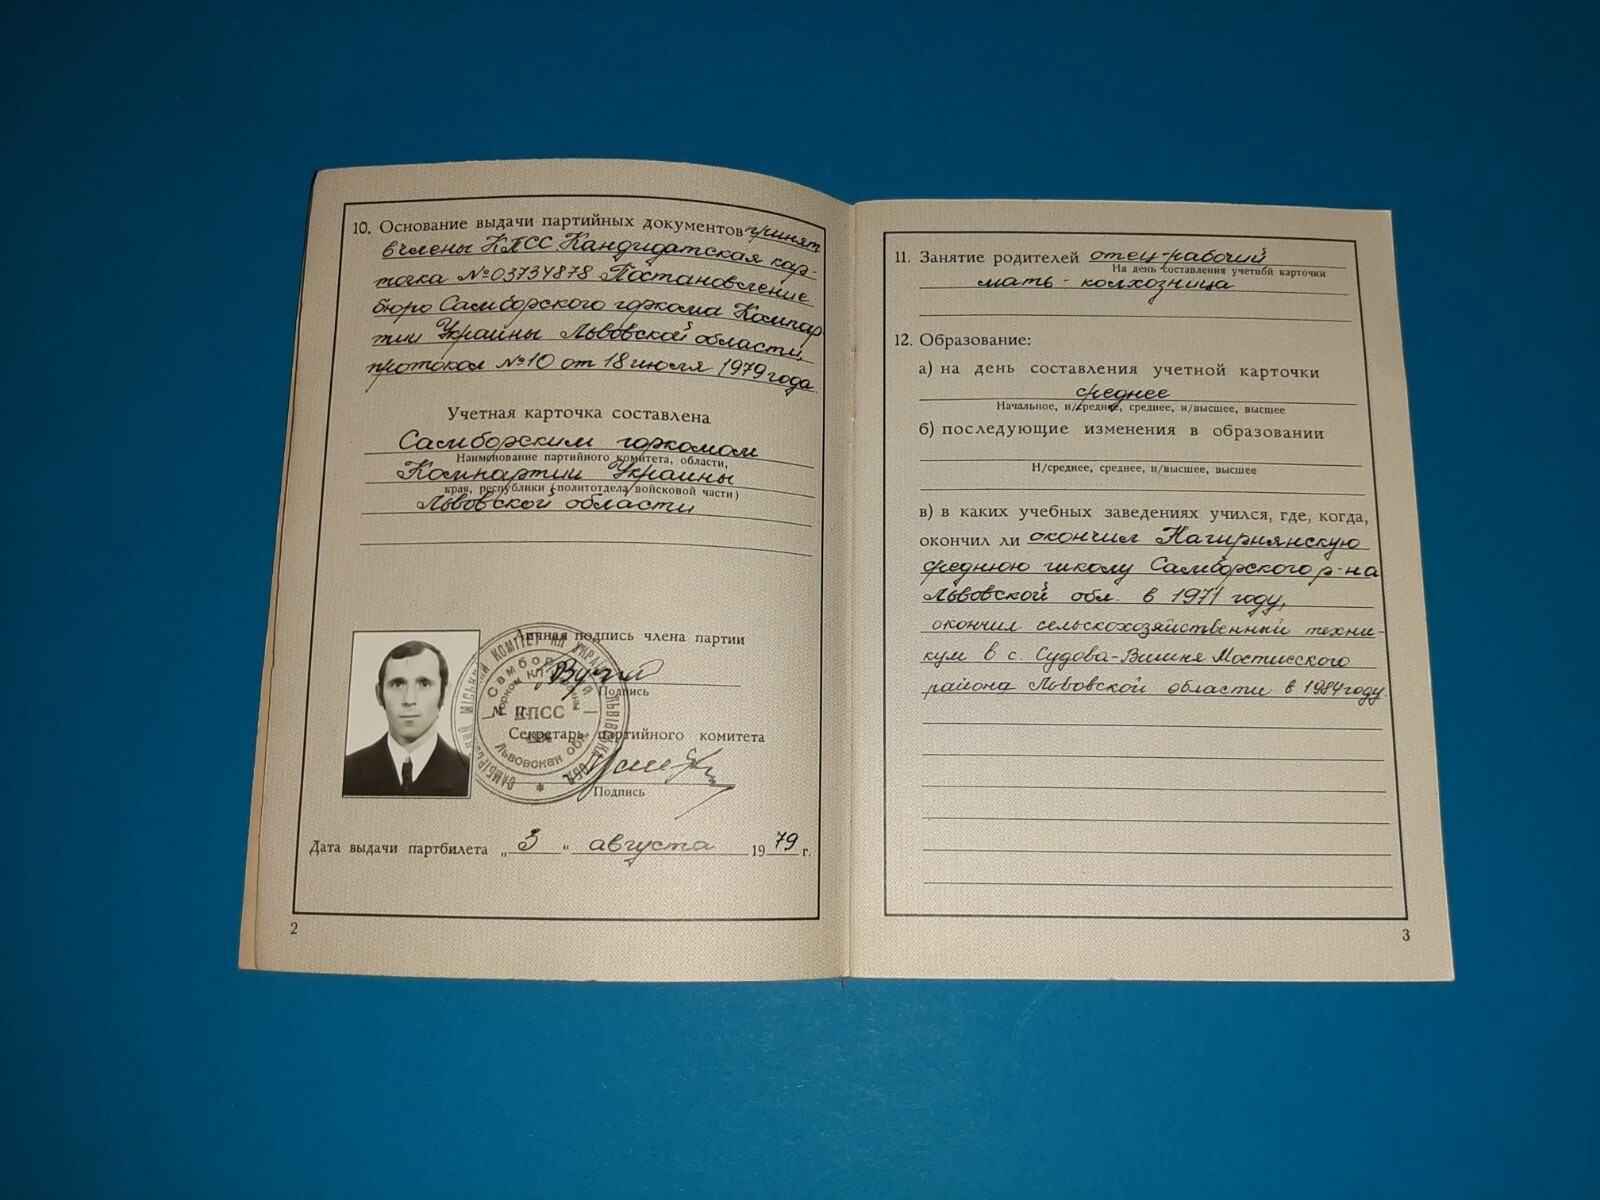 10. Основание выдачи партийных документов принят
в члены КПСС. Кандидатская кар-
точка №03734878 Постановление
бюро Самборского горкома Компар
тии Украины Львовской области,
протокол №10 от 18 июля 1979 года.
Учетная карточка составлена
Самборским горкомом
Наименование партийного комитета, области,
Компартии Украины
края, республики (политотдела войсковой части)
Львовской области
Личная подпись члена партии
Подпись
КПСС
Самбор
Львовская обл.
Секретарь партийного комитета
Подпись
Дата выдачи партбилета „ 3 “ августа 1979 г.
2
11. Занятие родителей отец-рабочий
На день составления учетной карточки
мать - колхозница
12. Образование:
а) на день составления учетной карточки
среднее
Начальное, н/среднее, среднее, н/высшее, высшее
б) последующие изменения в образовании
Н/среднее, среднее, н/высшее, высшее
в) в каких учебных заведениях учился, где, когда,
окончил ли окончил Нагирнянскую
среднюю школу Самборского р-на
Львовской обл. в 1971 году,
окончил сельскохозяйственный техни-
кум в с. Судова-Вишня Мостисского
района Львовской области в 1984 году.
3